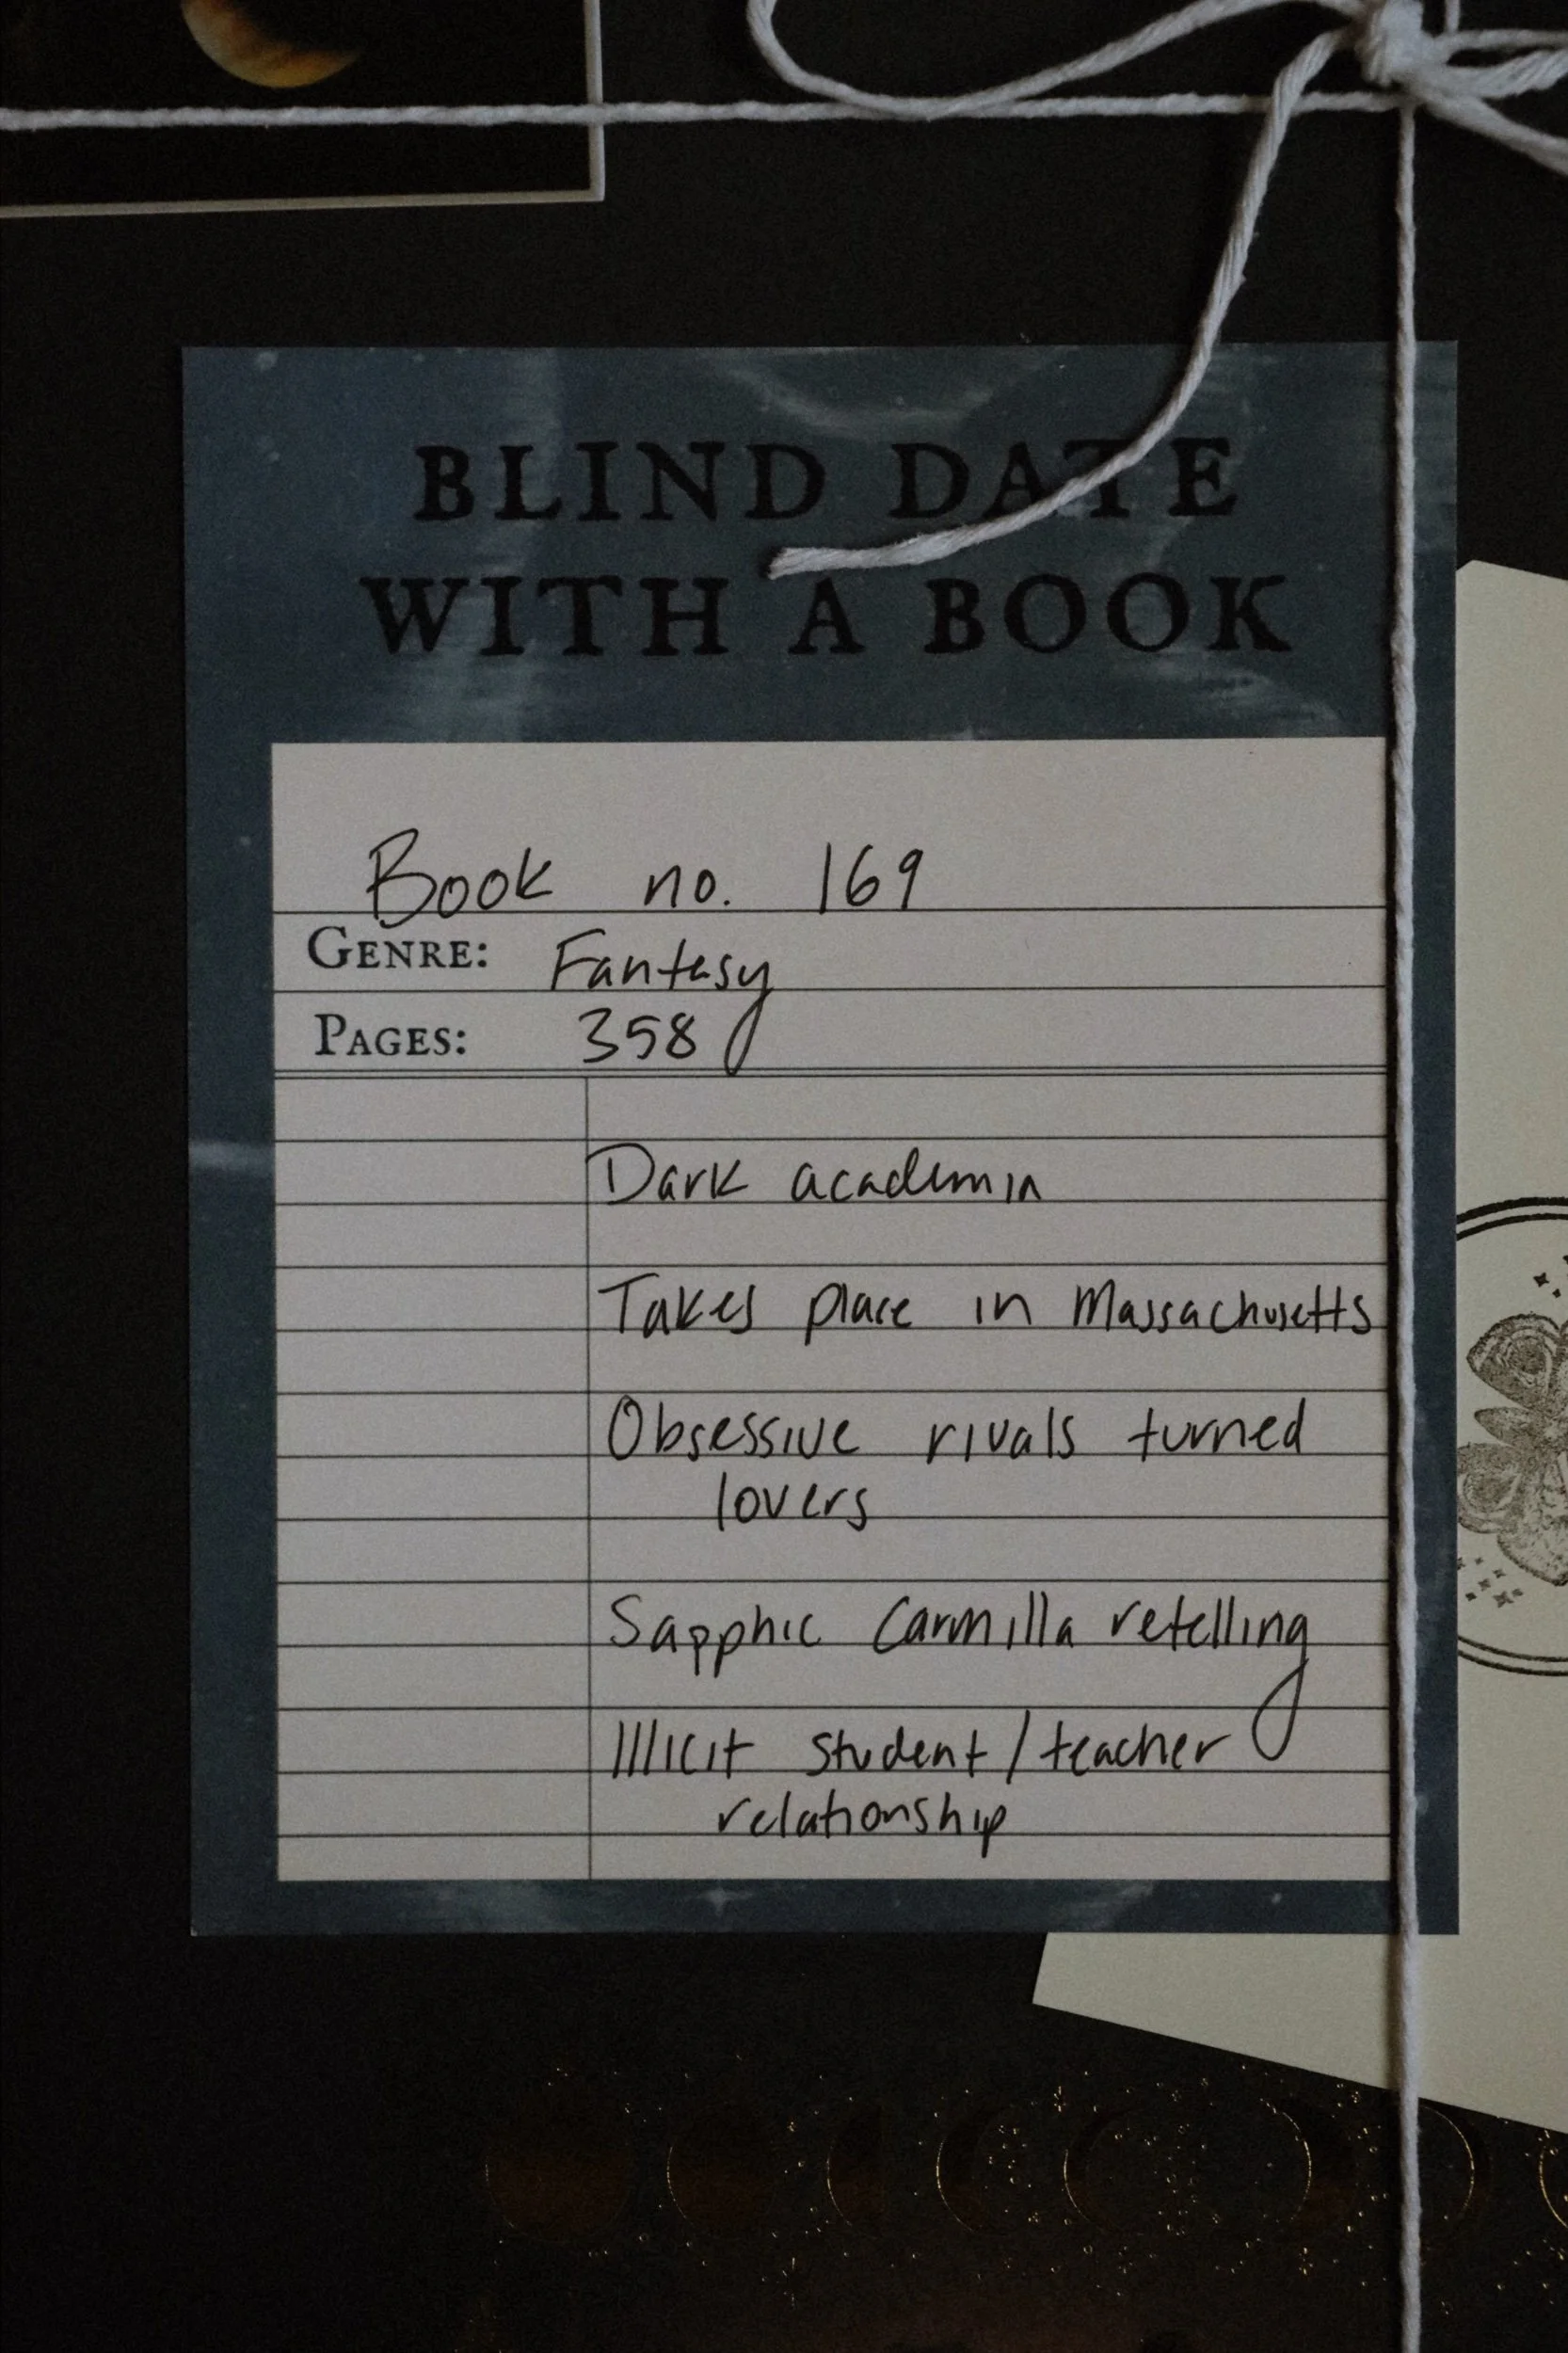 BLIND DATE
WITH A BOOK
Book no. 169
GENRE: Fantasy
PAGES: 358
Dark academia
Takes place in Massachusetts
Obsessive rivals turned
lovers
Sapphic Carmilla retelling
Illicit student/teacher
relationship